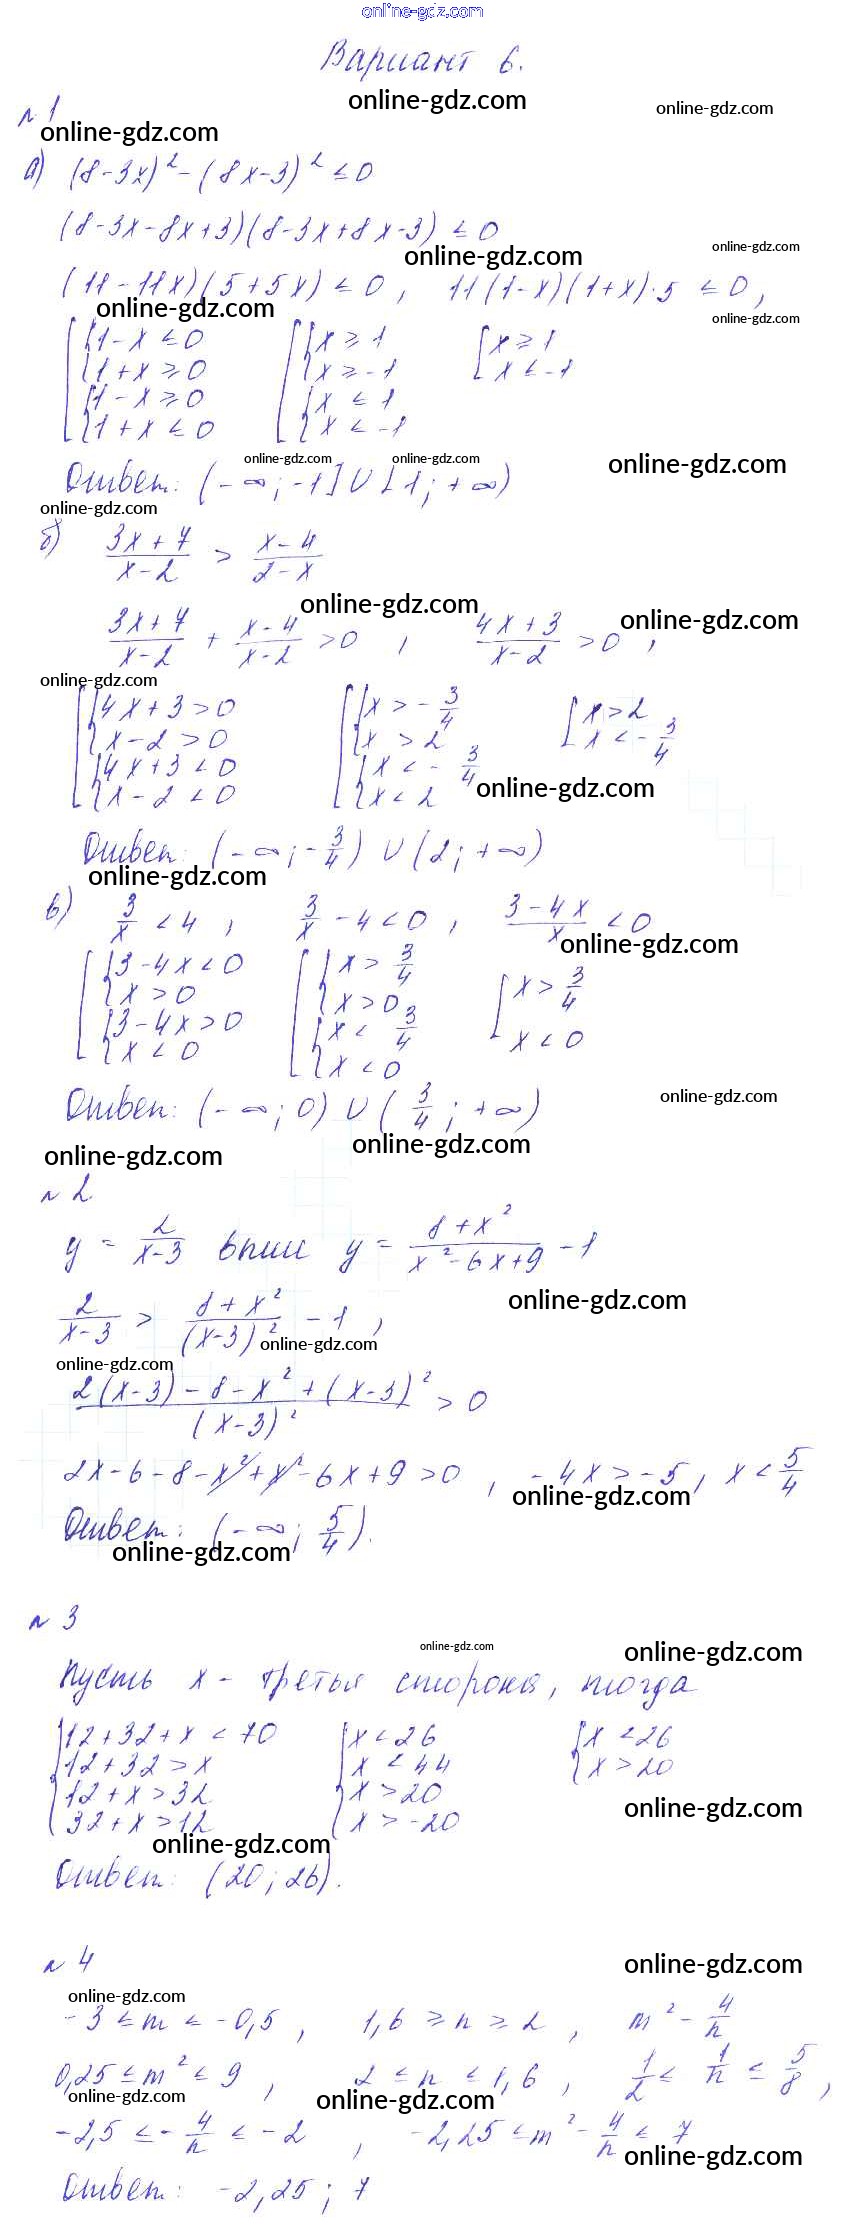 online-gdz.com
Вариант 6.
online-gdz.com online-gdz.com
№1
online-gdz.com
а) (8-3x)² - (8x-3)² ≤ 0
(8-3x-8x+3)(8-3x+8x-3) ≤ 0
online-gdz.com online-gdz.com
(11-11x)(5+5x) ≤ 0, 11(1-x)(1+x)·5 ≤ 0,
online-gdz.com online-gdz.com
[ { 1-x ≤ 0 [ { x ≥ 1 [ x ≥ 1
{ 1+x ≥ 0 { x ≥ -1 x ≤ -1
{ 1-x ≥ 0 { x ≤ 1
{ 1+x ≤ 0 { x ≤ -1
online-gdz.com online-gdz.com online-gdz.com
Ответ: (-∞; -1] ∪ [1; +∞)
online-gdz.com
б) (3x+7)/(x-2) > (x-4)/(2-x)
online-gdz.com online-gdz.com
(3x+7)/(x-2) + (x-4)/(x-2) > 0, (4x+3)/(x-2) > 0,
online-gdz.com
[ { 4x+3 > 0 [ { x > -3/4 [ x > 2
{ x-2 > 0 { x > 2 x < -3/4
{ 4x+3 < 0 { x < -3/4
{ x-2 < 0 { x < 2
online-gdz.com
Ответ: (-∞; -3/4) ∪ (2; +∞)
online-gdz.com
в) 3/x < 4, 3/x - 4 < 0, (3-4x)/x < 0
online-gdz.com
[ { 3-4x < 0 [ { x > 3/4 [ x > 3/4
{ x > 0 { x > 0 x < 0
{ 3-4x > 0 { x < 3/4
{ x < 0 { x < 0
Ответ: (-∞; 0) ∪ (3/4; +∞)
online-gdz.com
online-gdz.com online-gdz.com
№2
y = 2/(x-3) выше y = (8+x²)/(x²-6x+9) - 1
online-gdz.com
2/(x-3) > (8+x²)/(x-3)² - 1,
online-gdz.com
online-gdz.com
(2(x-3)-8-x²+(x-3)²)/(x-3)² > 0
2x-6-8-x²+x²-6x+9 > 0, -4x > -5, x < 5/4
online-gdz.com
Ответ: (-∞; 5/4).
online-gdz.com
№3
online-gdz.com online-gdz.com
Пусть x - третья сторона, тогда
{ 12+32+x < 70 { x < 26 { x < 26
12+32 > x x < 44 x > 20
12+x > 32 x > 20
32+x > 12 x > -20
online-gdz.com
online-gdz.com
Ответ: (20; 26).
№4
online-gdz.com
online-gdz.com
-3 ≤ m ≤ -0,5, 1,6 ≥ n ≥ 2, m² - 4/n
0,25 ≤ m² ≤ 9, 2 ≤ n ≤ 1,6, 1/2 ≤ 1/n ≤ 5/8,
online-gdz.com online-gdz.com
-2,5 ≤ -4/n ≤ -2, -2,25 ≤ m² - 4/n ≤ 7
online-gdz.com
Ответ: -2,25; 7